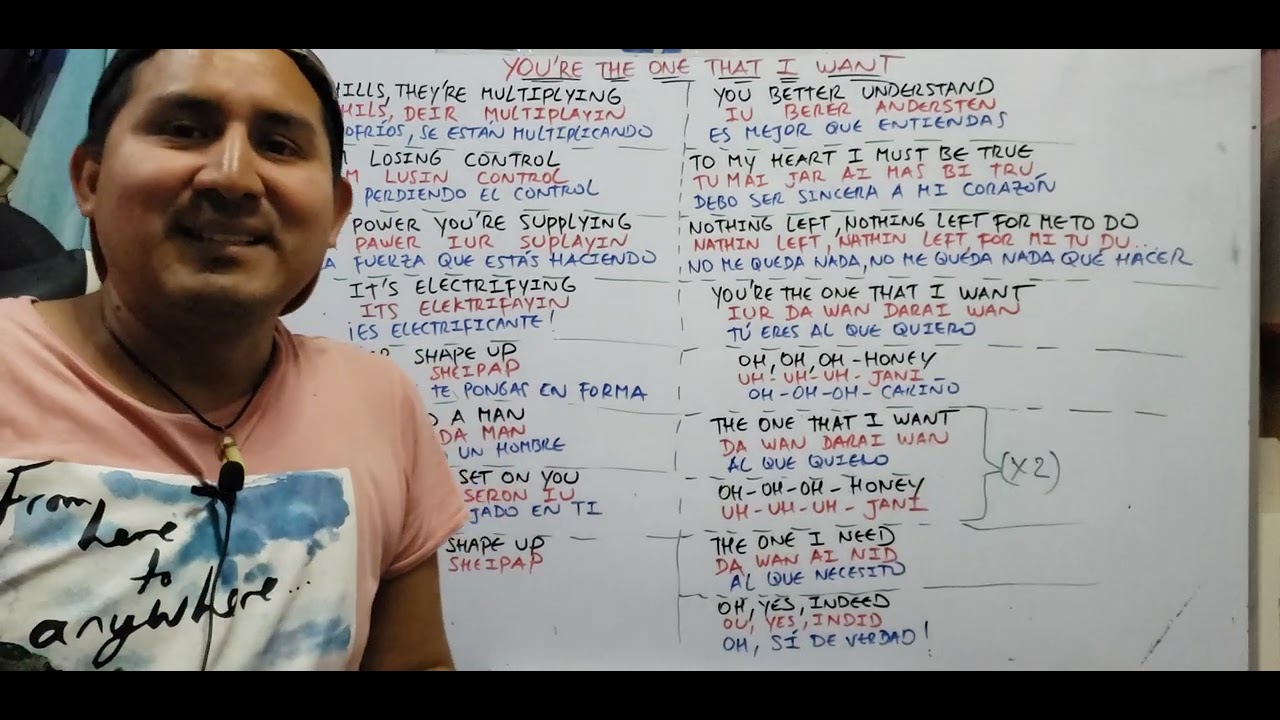 YOU'RE THE ONE THAT I WANT
HILLS, THEY'RE MULTIPLYING
HILS, DEIR MULTIPLAYIN
OFRÍOS, SE ESTÁN MULTIPLICANDO
LOSING CONTROL
LUSIN CONTROL
PERDIENDO EL CONTROL
POWER YOU'RE SUPPLYING
PAWER IUR SUPLAYIN
A FUERZA QUE ESTÁS HACIENDO
IT'S ELECTRIFYING
ITS ELEKTRIFAYIN
¡ES ELECTRIFICANTE!
SHAPE UP
SHEIPAP
TE PONGAS EN FORMA
A MAN
DA MAN
UN HOMBRE
SET ON YOU
SERON IU
JADO EN TI
SHAPE UP
SHEIPAP
YOU BETTER UNDERSTAND
IU BERER ANDERSTEN
ES MEJOR QUE ENTIENDAS
TO MY HEART I MUST BE TRUE
TU MAI JAR AI MAS BI TRU
DEBO SER SINCERA A MI CORAZÓN
NOTHING LEFT, NOTHING LEFT FOR ME TO DO
NATHIN LEFT, NATHIN LEFT FOR MI TU DU...
NO ME QUEDA NADA, NO ME QUEDA NADA QUE HACER
YOU'RE THE ONE THAT I WANT
IUR DA WAN DARAI WAN
TÚ ERES AL QUE QUIERO
OH, OH, OH - HONEY
UH - UH - UH - JANI
OH - OH - OH - CARIÑO
THE ONE THAT I WANT
DA WAN DARAI WAN
AL QUE QUIERO
(X2)
OH - OH - OH - HONEY
UH - UH - UH - JANI
THE ONE I NEED
DA WAN AI NID
AL QUE NECESITO
OH, YES, INDEED
OU, YES, INDID
OH, SÍ DE VERDAD!
From
here
to
anywhere...